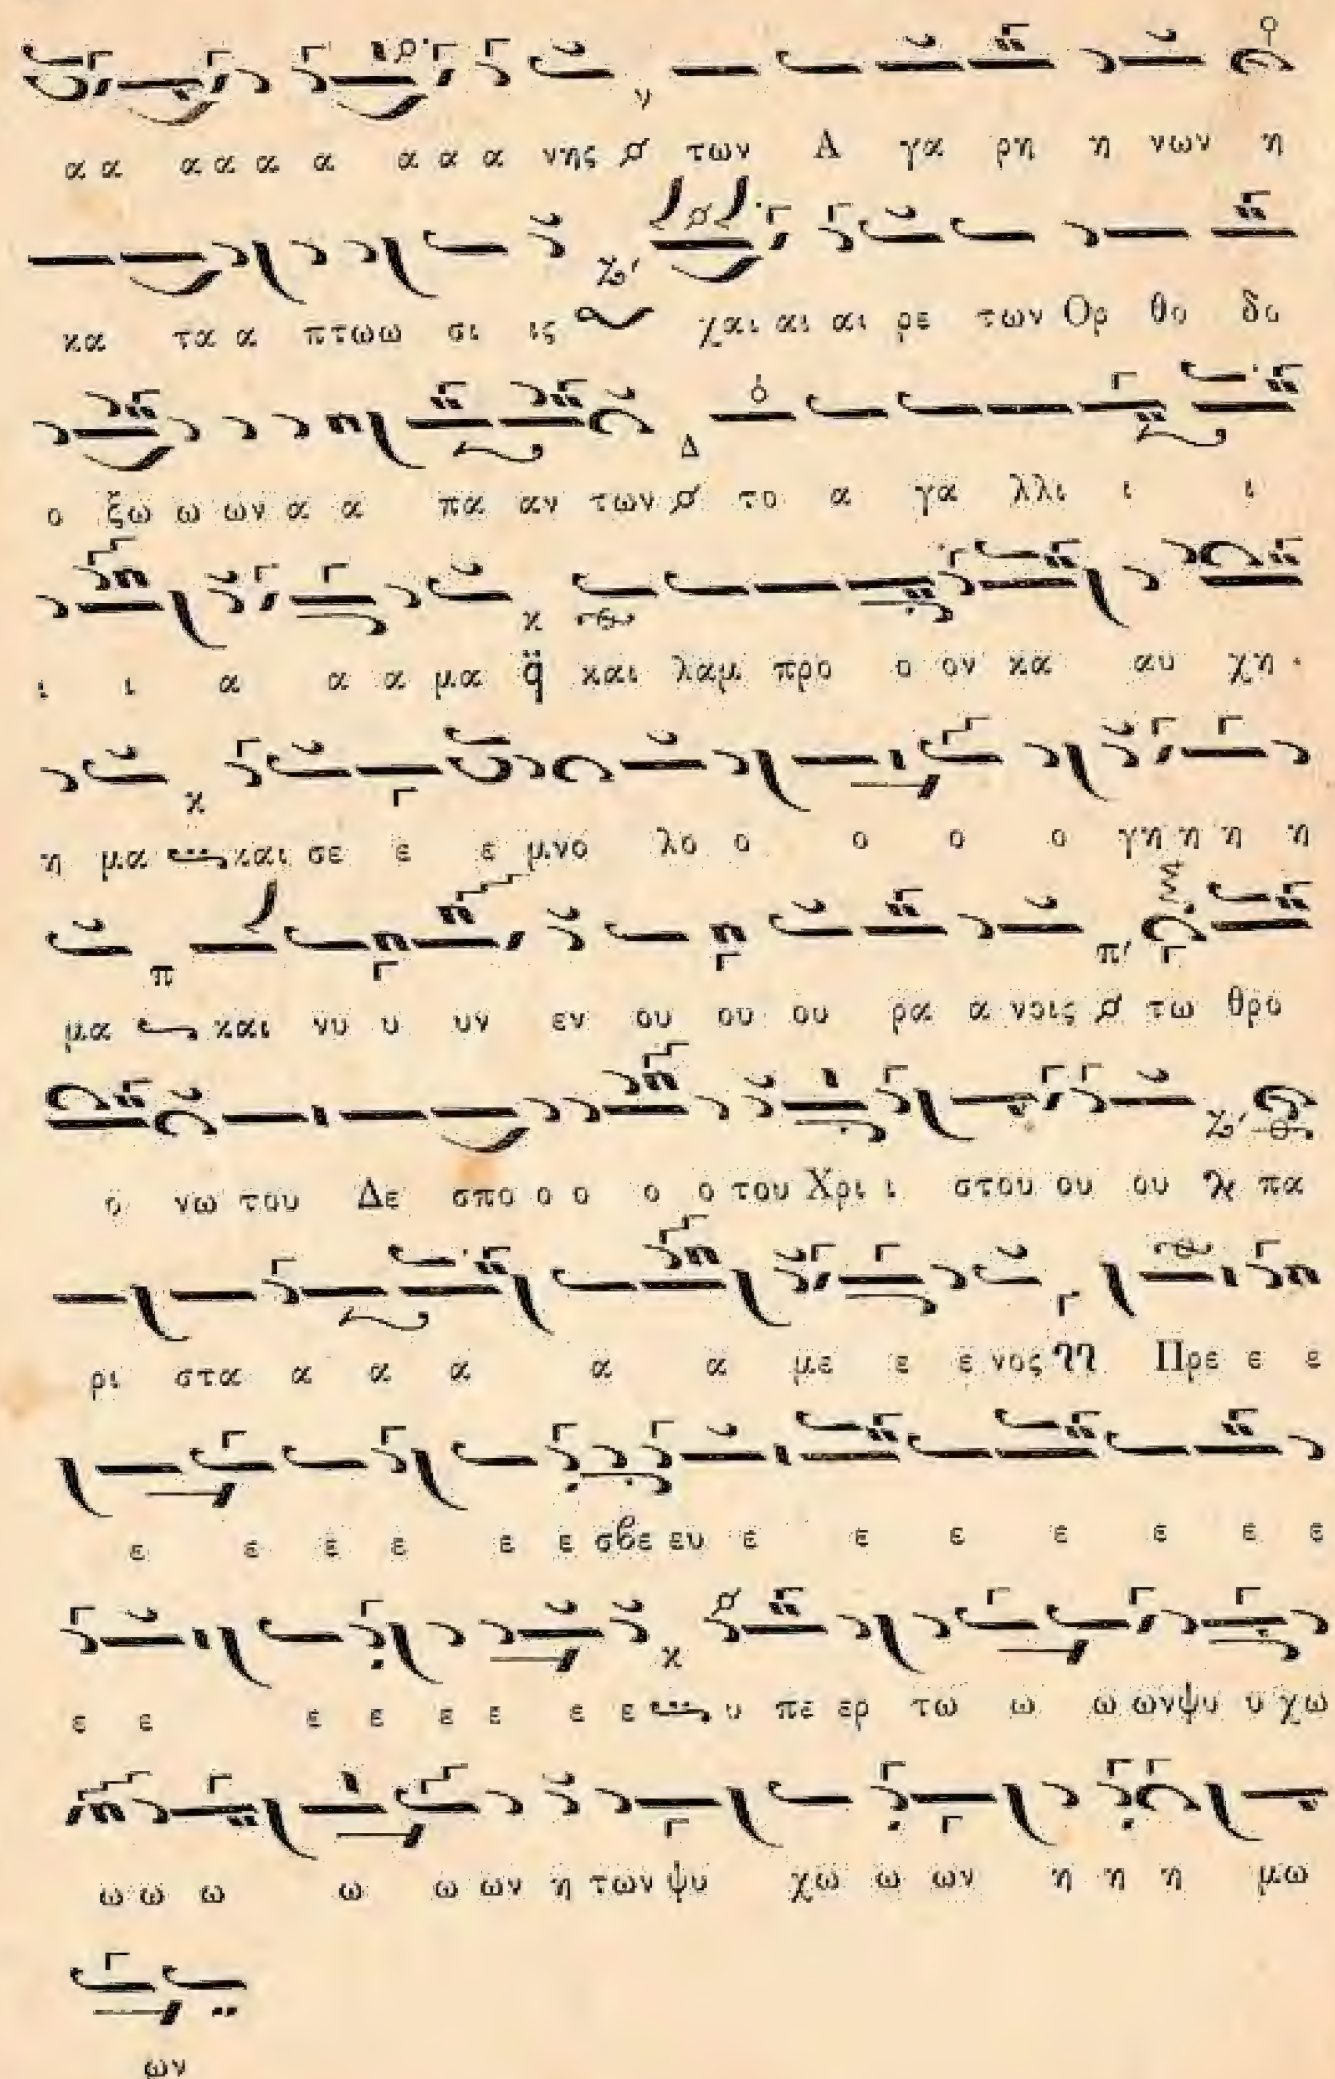 α α α α α α α α α νης των Α γα ρη η νων η
κα τα α πτωω σι ις χαι αι αι ρε των Ορ θο δο
ο ξω ω ων α α πα αν των το α γα λλι ι ι
ι ι α α α μα και λαμ προ ο ον κα αυ χη
η μα και σε ε ε μνο λο ο ο ο ο γη η η η
μα και νυ υ υν εν ου ου ου ρα α νοις τω θρο
ο νω του Δε σπο ο ο ο ο του Χρι ι στου ου ου πα
ρι στα α α α α α με ε ε νος Πρε ε ε
ε ε ε ε ε ε σβε ευ ε ε ε ε ε ε ε
ε ε ε ε ε ε ε ε υ πε ερ τω ω ω ων ψυ υ χω
ω ω ω ω ω ων η των ψυ χω ω ων η η η μω
ων